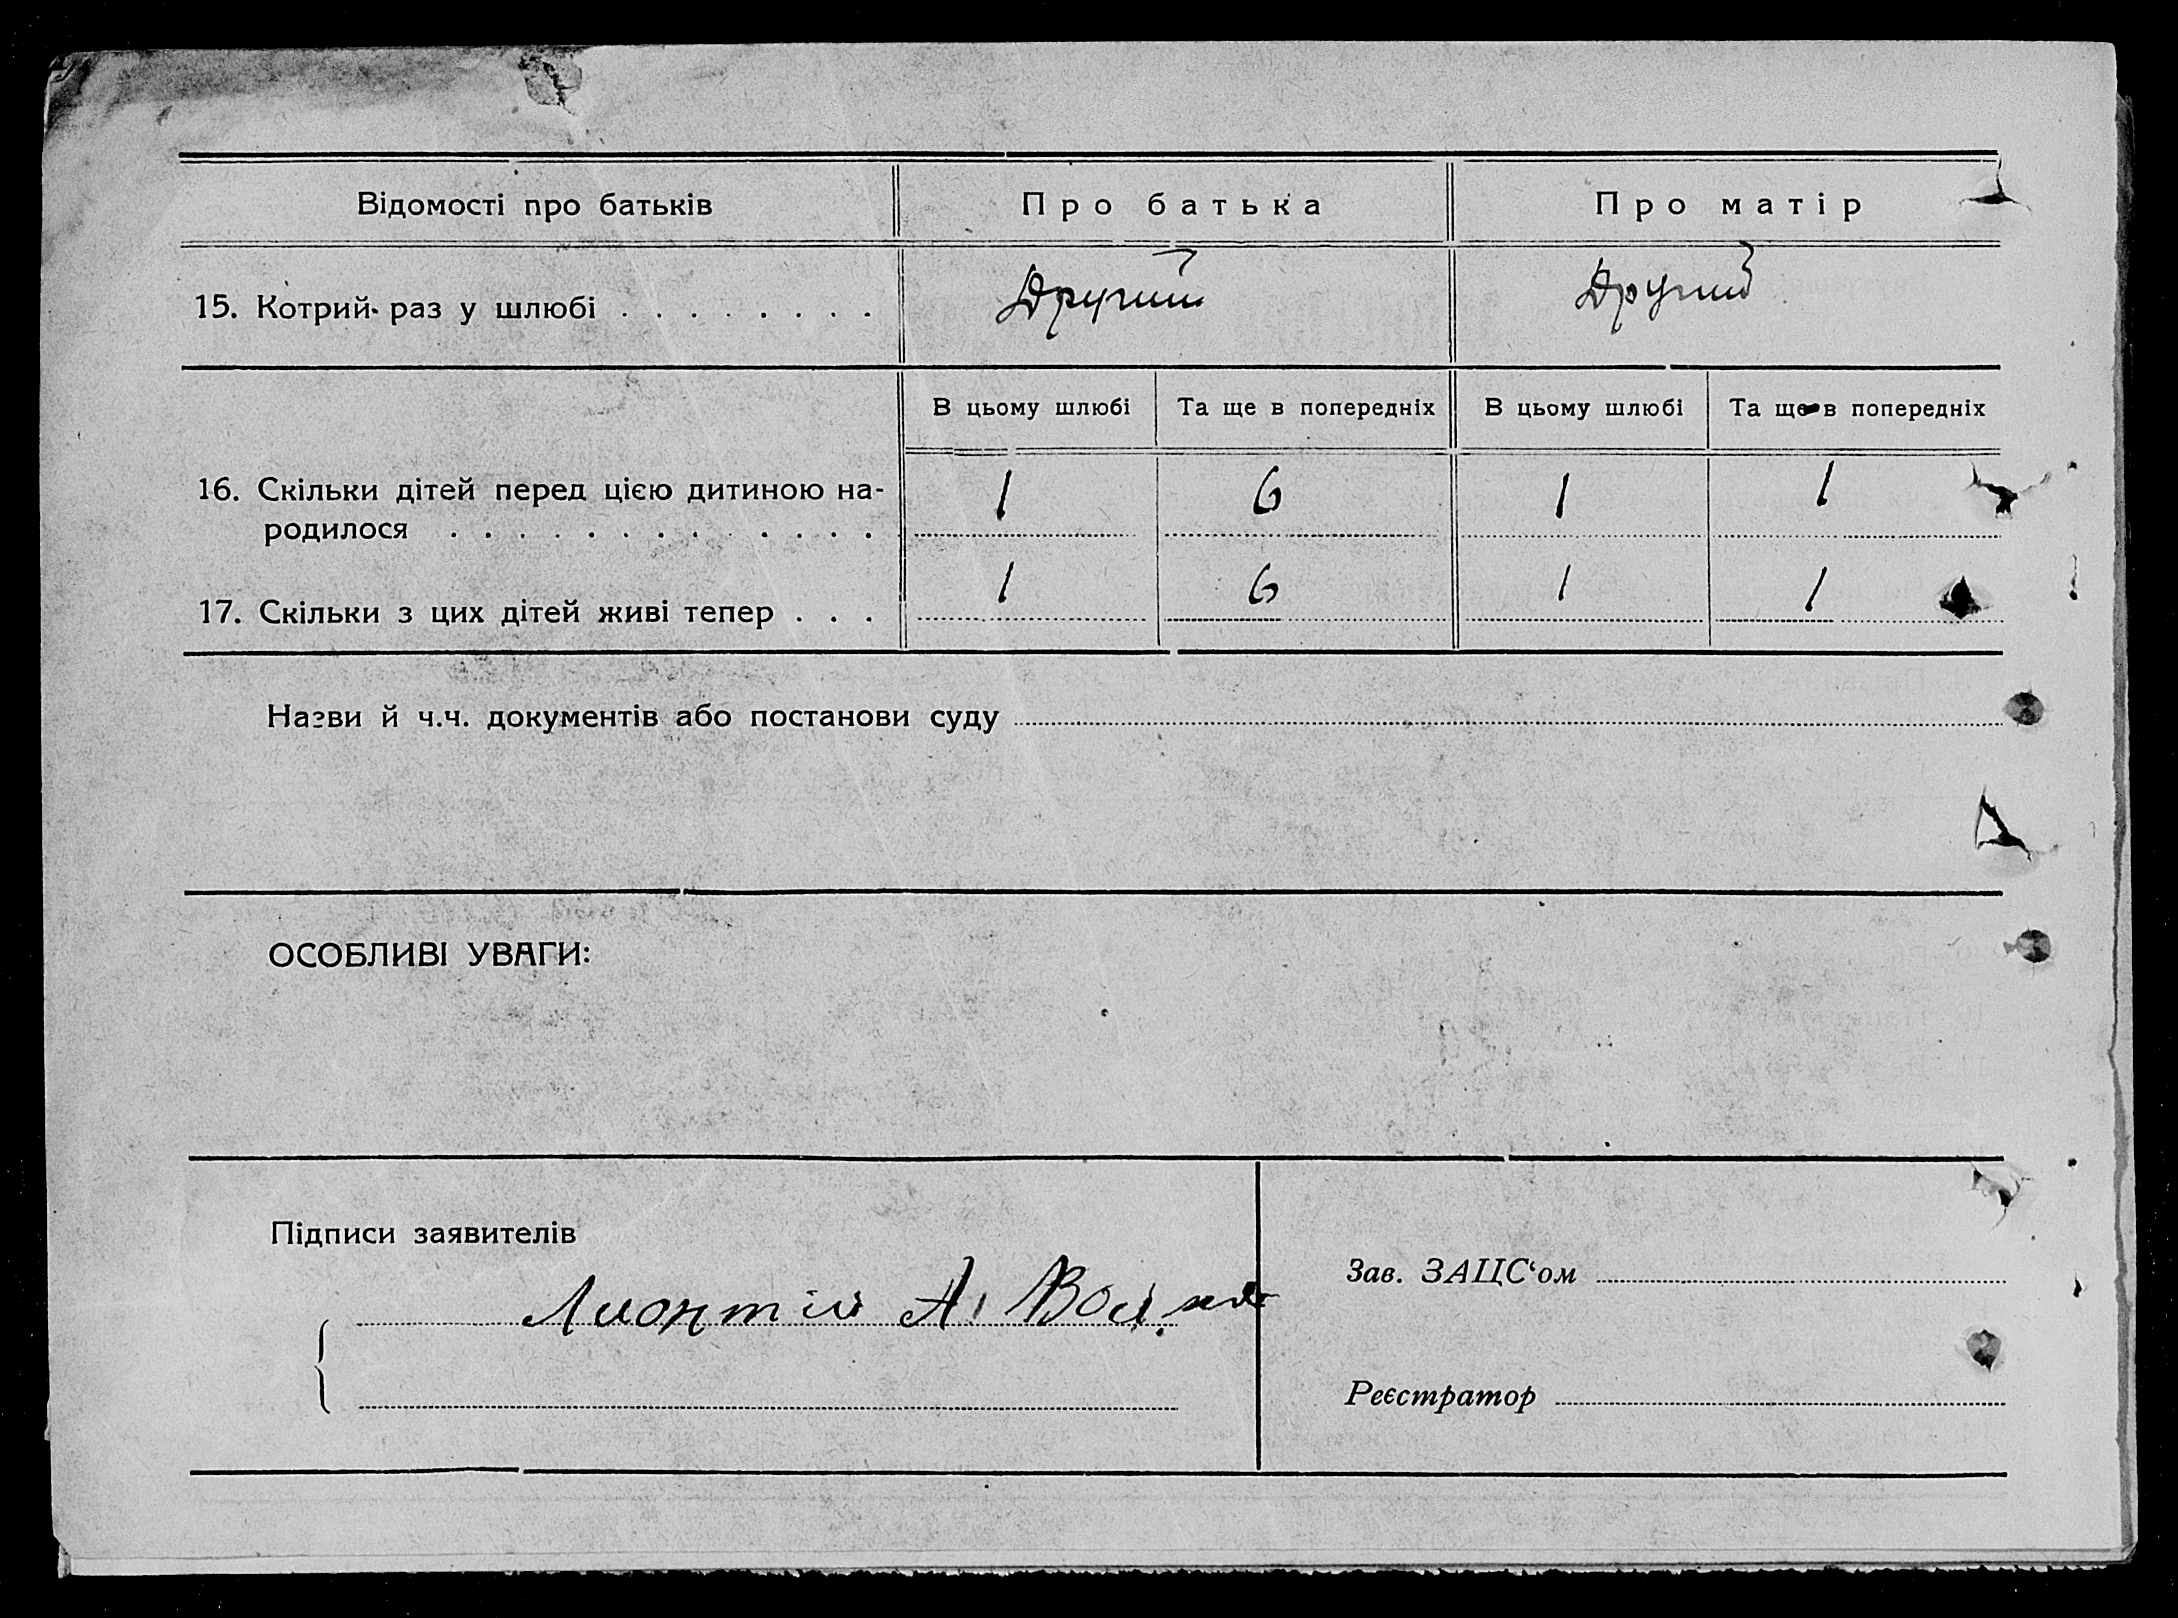 Відомості про батьків Про батька Про матір
15. Котрий раз у шлюбі . . . . . . . . Другий Другий
В цьому шлюбі Та ще в попередніх В цьому шлюбі Та ще в попередніх
16. Скільки дітей перед цією дитиною на-
родилося . . . . . . . . . . . . . 1 6 1 1
17. Скільки з цих дітей живі тепер . . . 1 6 1 1
Назви й ч.ч. документів або постанови суду
ОСОБЛИВІ УВАГИ:
Підписи заявителів
Зав. ЗАЦС‘ом
А.
Реєстратор